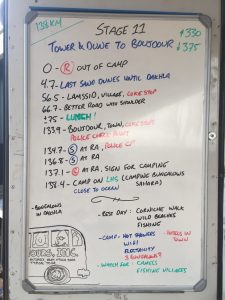 138KM
STAGE 11
↑330
TOWER & DUNE TO BOUJDOUR
↓375
0 - R OUT OF CAMP
4.7 - LAST SAND DUNES UNTIL DAKHLA
56.5 - LAMSSID, VILLAGE, COKE STOP
66.7 - BETTER ROAD WITH SHOULDER
LUNCH!
BOUJDOUR, TOWN, COKE STOP
POLICE CHECK POINT
134.7 - S AT RA, POLICE CP
136.8 - S AT RA
137.1 - R AT RA, SIGN FOR CAMPING
138.4 - CAMP ON LHS (CAMPING BUNGALOWS SAHARA)
CLOSE TO OCEAN
- BUNGALOWS IN DAKHLA
- REST DAY : CORNICHE WALK
WILD BEACHES
FISHING
- CAMP - HOT SHOWERS
- HOTELS IN TOWN
WIFI
ELECTRICITY
BUNGALOWS?
- WATCH FOR : CAMELS
FISHING VILLAGES